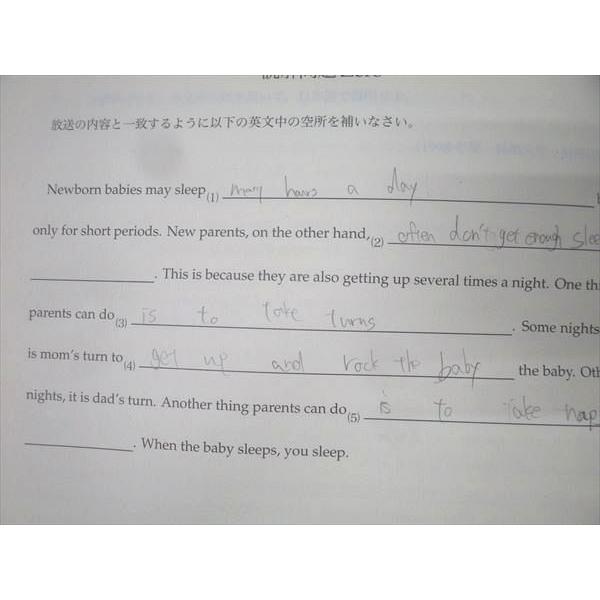 放送の内容と一致するように以下の英文中の空所を補いなさい。
Newborn babies may sleep (1) many hours a day
only for short periods. New parents, on the other hand, (2) often don't get enough slee
. This is because they are also getting up several times a night. One thi
parents can do (3) is to take turns . Some nights
is mom's turn to (4) get up and rock the baby the baby. Oth
nights, it is dad's turn. Another thing parents can do (5) is to take nap
. When the baby sleeps, you sleep.